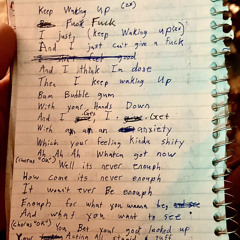 Keep Waking up (2x)
Fuck Fuck
I Justy (Keep Waking up (2x)
And I just can't give a Fuck
feel good
And I think Im done
Then I keep waking Up
Bam Bubble gum
With your Hands Down
And I Get
With an anxiety
Which your feeling Kinda shity
Ah Ah Whatcha got now
(chorus "OK") Well its never enough
How come its never enough
It wan't ever Be enough
Enough for what you wanna be,
And what you want to see
(chorus "OK") You Bet your goat locked up
Acting All stupid